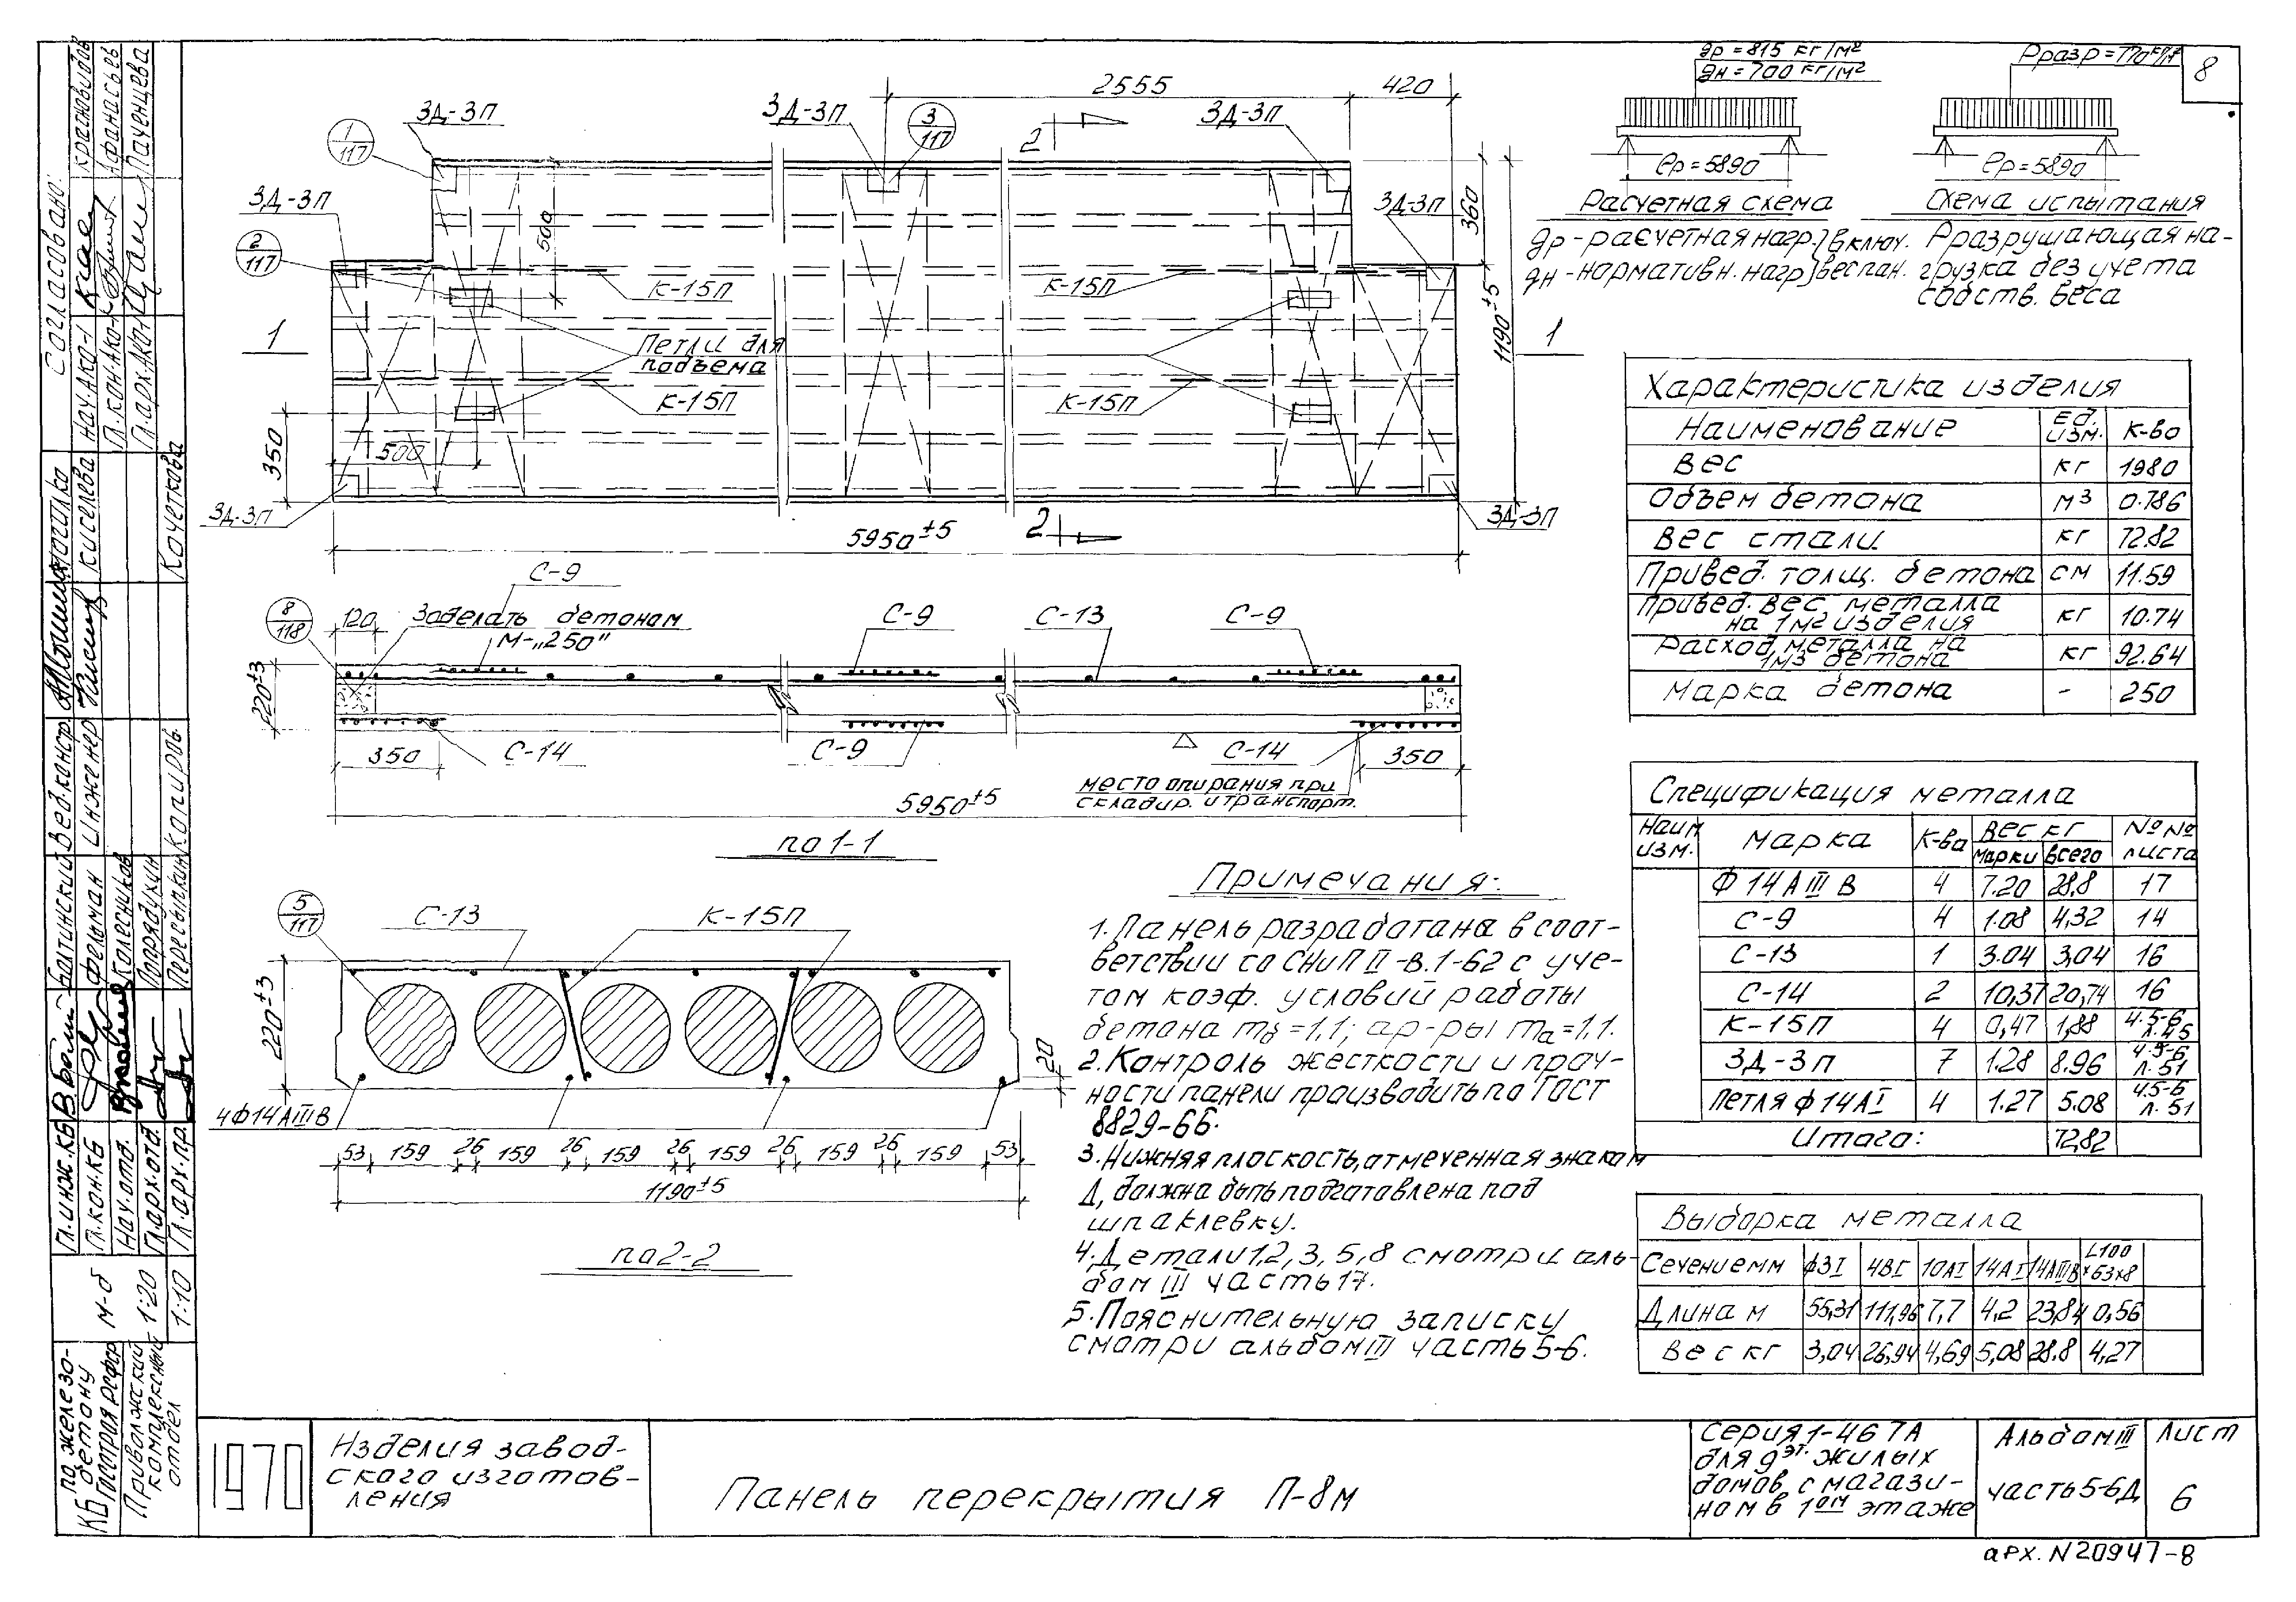 8
ЗД-3П
ЗД-3П
3
117
2
2555
420
ЗД-3П
1
117
ЗД-3П
2
117
500
ЗД-3П
360
К-15П
К-15П
1190±5
1
1
Петли для
подъема
К-15П
К-15П
350
500
ЗД-3П
ЗД-3П
5950±5
2
gр=815 кг/м²
gн=700 кг/м²
ℓр=5890
Расчетная схема
gр-расчетная нагр.}включ.
gн-нормативн. нагр}вес пан.
ℓр=5890
Схема испытания
Рразрушающая на-
грузка без учета
собств. веса
С-9
8
118
120
Заделать бетоном
М-„250"
С-9
С-13
С-9
220±3
350
С-14
С-9
С-14
350
место опирания при
складир. и транспорт.
5950±5
по 1-1
5
117
С-13
К-15П
220±3
20
4Ф14АIIIВ
53 159 26 159 26 159 26 159 26 159 26 159 53
1190±5
по 2-2
Примечания:
1. Панель разработана в соот-
ветствии со СНиП II-В.1-62 с уче-
том коэф. условий работы
бетона mб=1,1; ар-ры mа=1,1.
2. Контроль жесткости и проч-
ности панели производить по ГОСТ
8829-66.
3. Нижняя плоскость, отмеченная знаком
Δ, должна быть подготовлена под
шпаклевку.
4. Детали 1,2,3,5,8 смотри аль-
бом III часть 17.
5. Пояснительную записку
смотри альбом III часть 5-6.
Характеристика изделия
Наименование Ед. изм. К-во
Вес кг 1980
Объем бетона м³ 0.786
Вес стали кг 72.82
Привед. толщ. бетона см 11.59
Привед. вес металла на 1м² изделия кг 10.74
Расход металла на 1м3 бетона кг 92.64
Марка бетона - 250
Спецификация металла
Наим. изм. Марка К-ва Вес кг марки всего №№ листа
Ф 14 А III В 4 7.20 28,8 17
С-9 4 1.08 4,32 14
С-13 1 3.04 3,04 16
С-14 2 10,37 20,74 16
К-15П 4 0,47 1,88 ч.5-6 л.45
ЗД-3П 7 1.28 8.96 ч.5-6 л.51
Петля ф 14АI 4 1.27 5.08 ч.5-6 л.51
Итого: 72,82
Выборка металла
Сечение мм Ф3I 4ВI 10АI 14АI 14АIIIВ L100×63×8
Длина м 55,31 111,96 7,7 4,2 23,84 0,56
Вес кг 3,04 26,94 4,69 5,08 28.8 4,27
1970
Изделия завод-
ского изготов-
ления
Панель перекрытия П-8м
Серия 1-467А
для 9эт. жилых
домов с магази-
ном в 1ом этаже
Альбом III
часть 5-6Д
Лист
6
арх. N 20947-8
Согласовано:
Нач. АКО-1
Гл. кон. АКО-1
Гл. арх. АКО-1
Афанасьев
Паченцева
Вед. констр.
Инженер
Киселева
Копиров.
Кочеткова
Гл. инж. КБ
Гл. кон. КБ
Нач. отд.
Гл. арх. отд.
Гл. арх. пр.
Фельман
Колесников
КБ по железо-
бетону
Госстроя РСФСР
Приволжский
комплексный
отдел
М-б
1:20
1:10